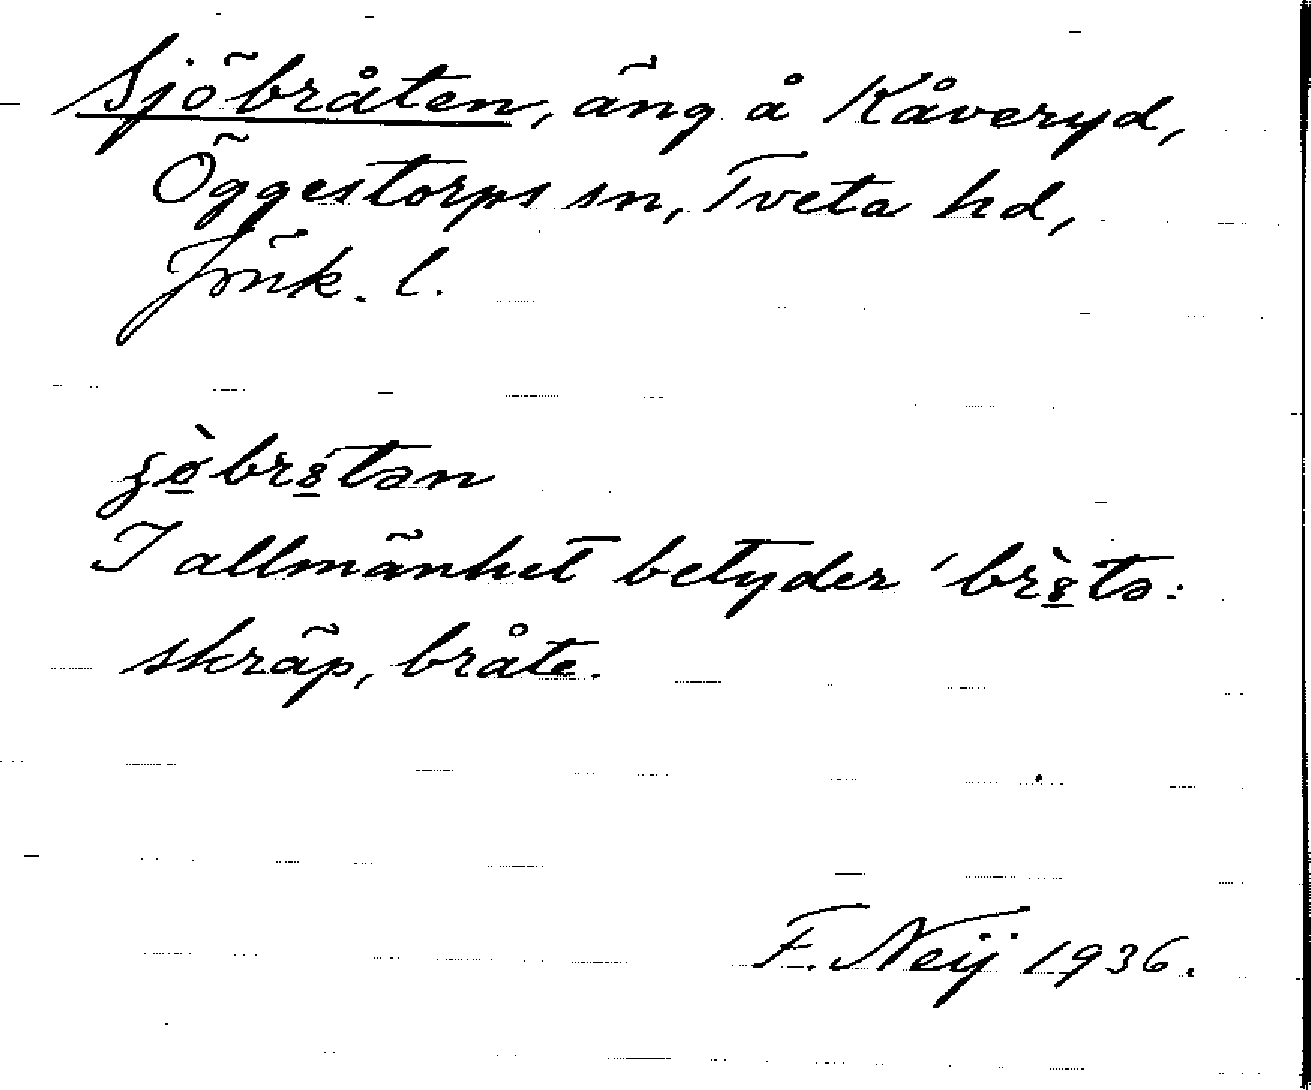 Sjöbråten, äng å Kåveryd,
Öggestorps sn, Tveta hd,
Jönk. l.
ʂø̠̀br8̠tən
I allmänhet betyder 'br8̠̀tə:
skräp, bråte.
F. Neij 1936.